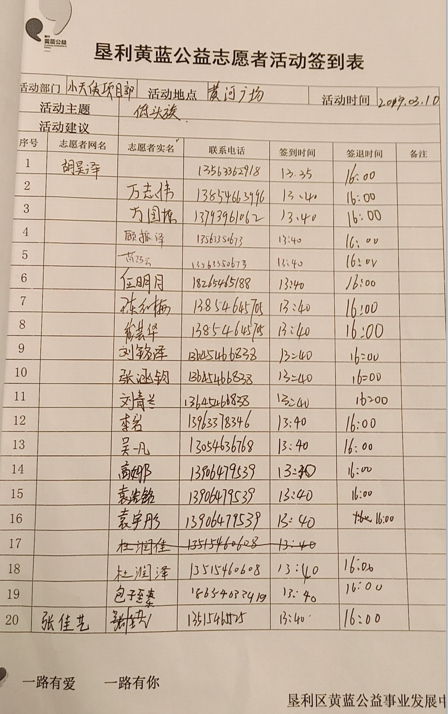 黄蓝公益
垦利黄蓝公益志愿者活动签到表
活动部门 小天使项目部 活动地点 黄河广场 活动时间 2019.03.10
活动主题 低头族
活动建议
序号 志愿者网名 志愿者实名 联系电话 签到时间 签退时间 备注
1 胡昊泽 13563362918 13:35 16:00
2 万志伟 13854663996 13:40 16:00
3 13793961062 13:40 16:00
4 顾振泽 13:40 16:00
5 13:40 16:00
6 任明月 18265465188 13:40 16:00
7 13854645705 13:40 16:00
8 13:40 16:00
9 刘铭泽 13645466838 13:40 16:00
10 张涵钧 13645466838 13:40 16:00
11 刘青兰 13645466838 13:40 16:00
12 13963378346 13:40 16:00
13 吴一凡 13054636768 13:40 16:00
14 13906479539 13:40 16:00
15 袁浩铭 13906479539 13:40 16:00
16 袁宇彤 13906479539 13:40 16:00
17 杜润佳 13515460608 13:40
18 杜润泽 13515460608 13:40 16:00
19 13:40 16:00
20 张佳艺 13:40 16:00
一路有爱 一路有你
垦利区黄蓝公益事业发展中